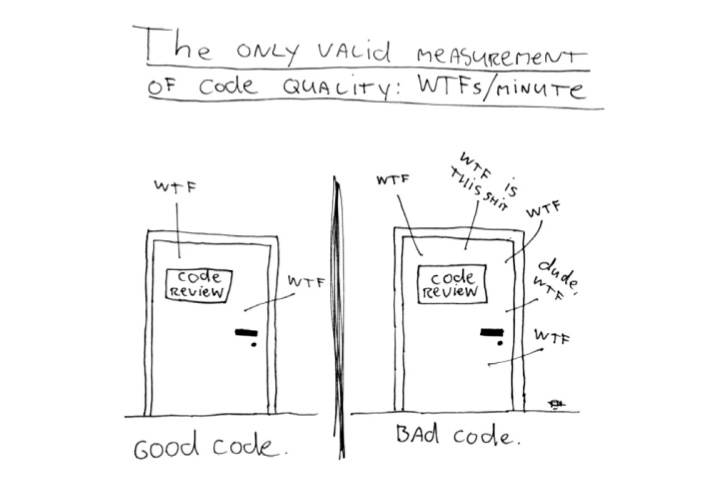 The ONLY VALID MEASUREMENT
OF Code QUALITY: WTFs/MINUTE
WTF
Code
REVIEW
WTF
GOOD Code.
WTF
WTF is
THIS SHIT
WTF
Code
REVIEW
dude,
WTF
WTF
BAD Code.